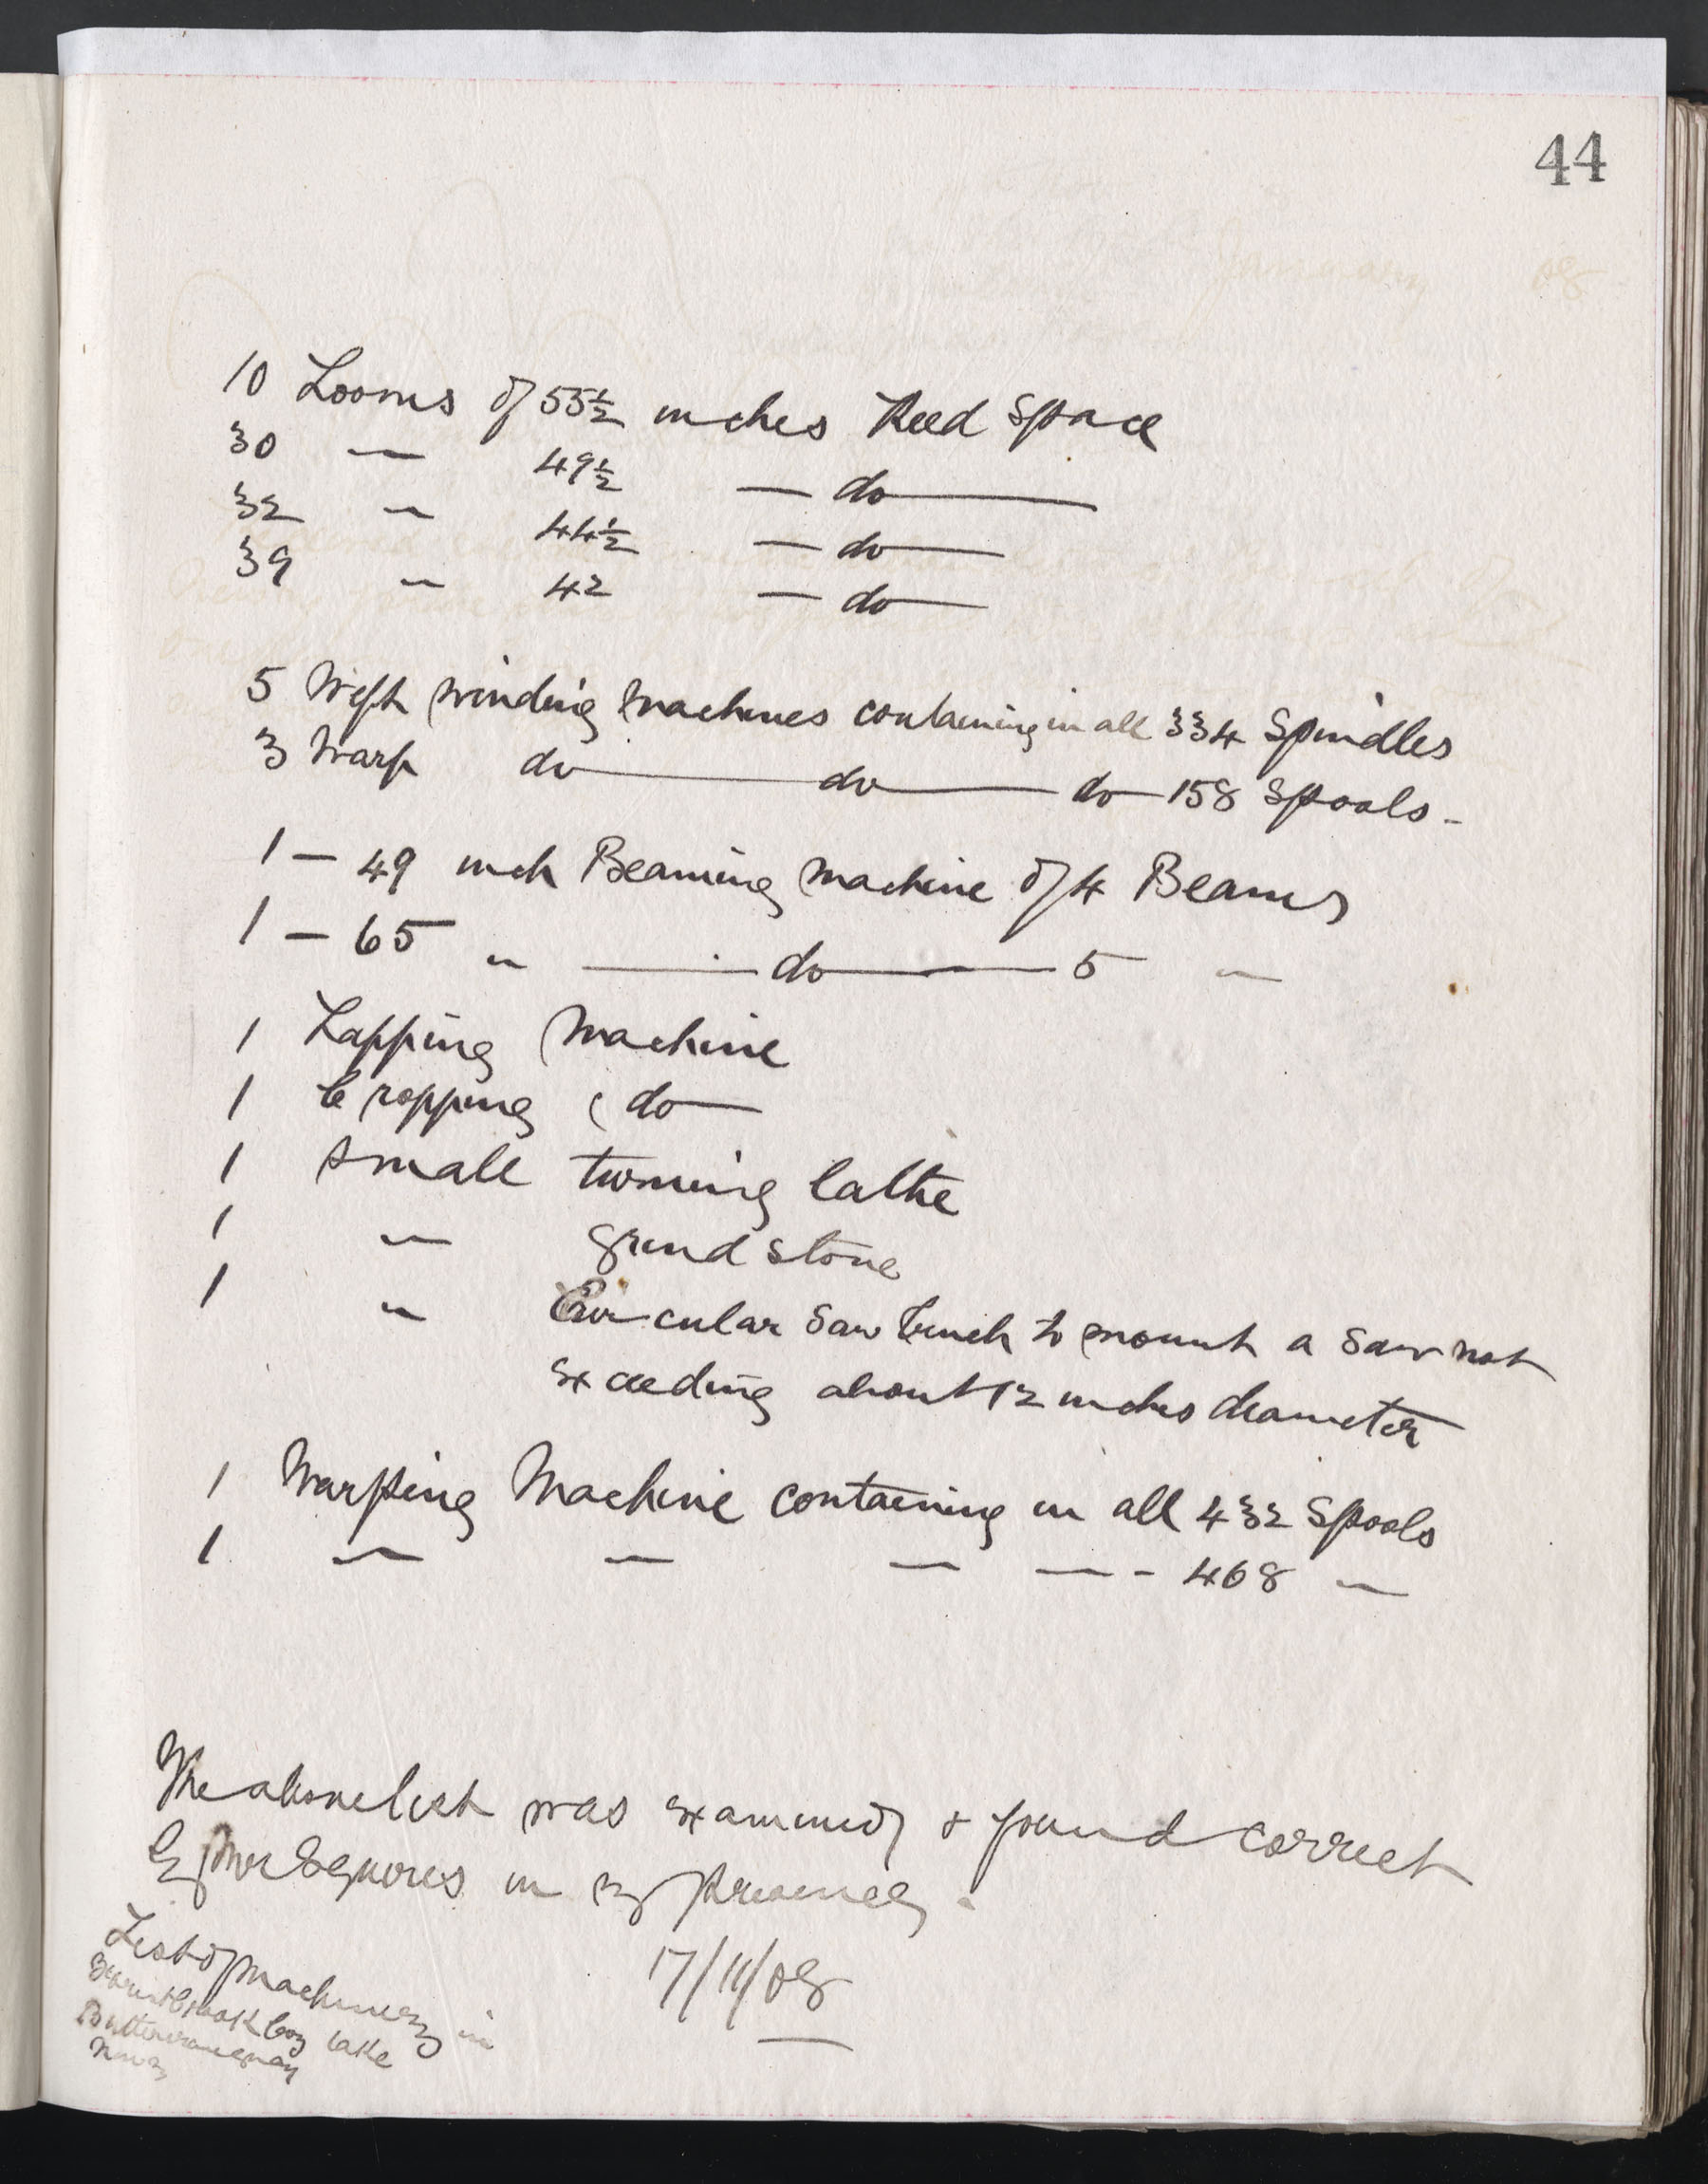 44
10 Looms of 55½ inches Reed Space
30 — 49½ — do —
32 " 44½ — do —
39 " 42 — do —
5 Weft winding Machines containing in all 334 Spindles
3 Warp do — do — do — 158 Spools -
1 — 49 inch Beaming Machine of 4 Beams
1 — 65 " — do — 5 "
1 Lapping Machine
1 Cropping do —
1 small turning lathe
1 " grind stone
1 " Circular Saw bench to mount a Saw not
exceeding about 12 inches diameter
1 Warping Machine containing in all 432 Spools
1 " " " — - 468 "
The above list was examined & found correct
by Mr in my presence.
17/11/08
List of Machinery in
late
Buttercrane quay
Newry